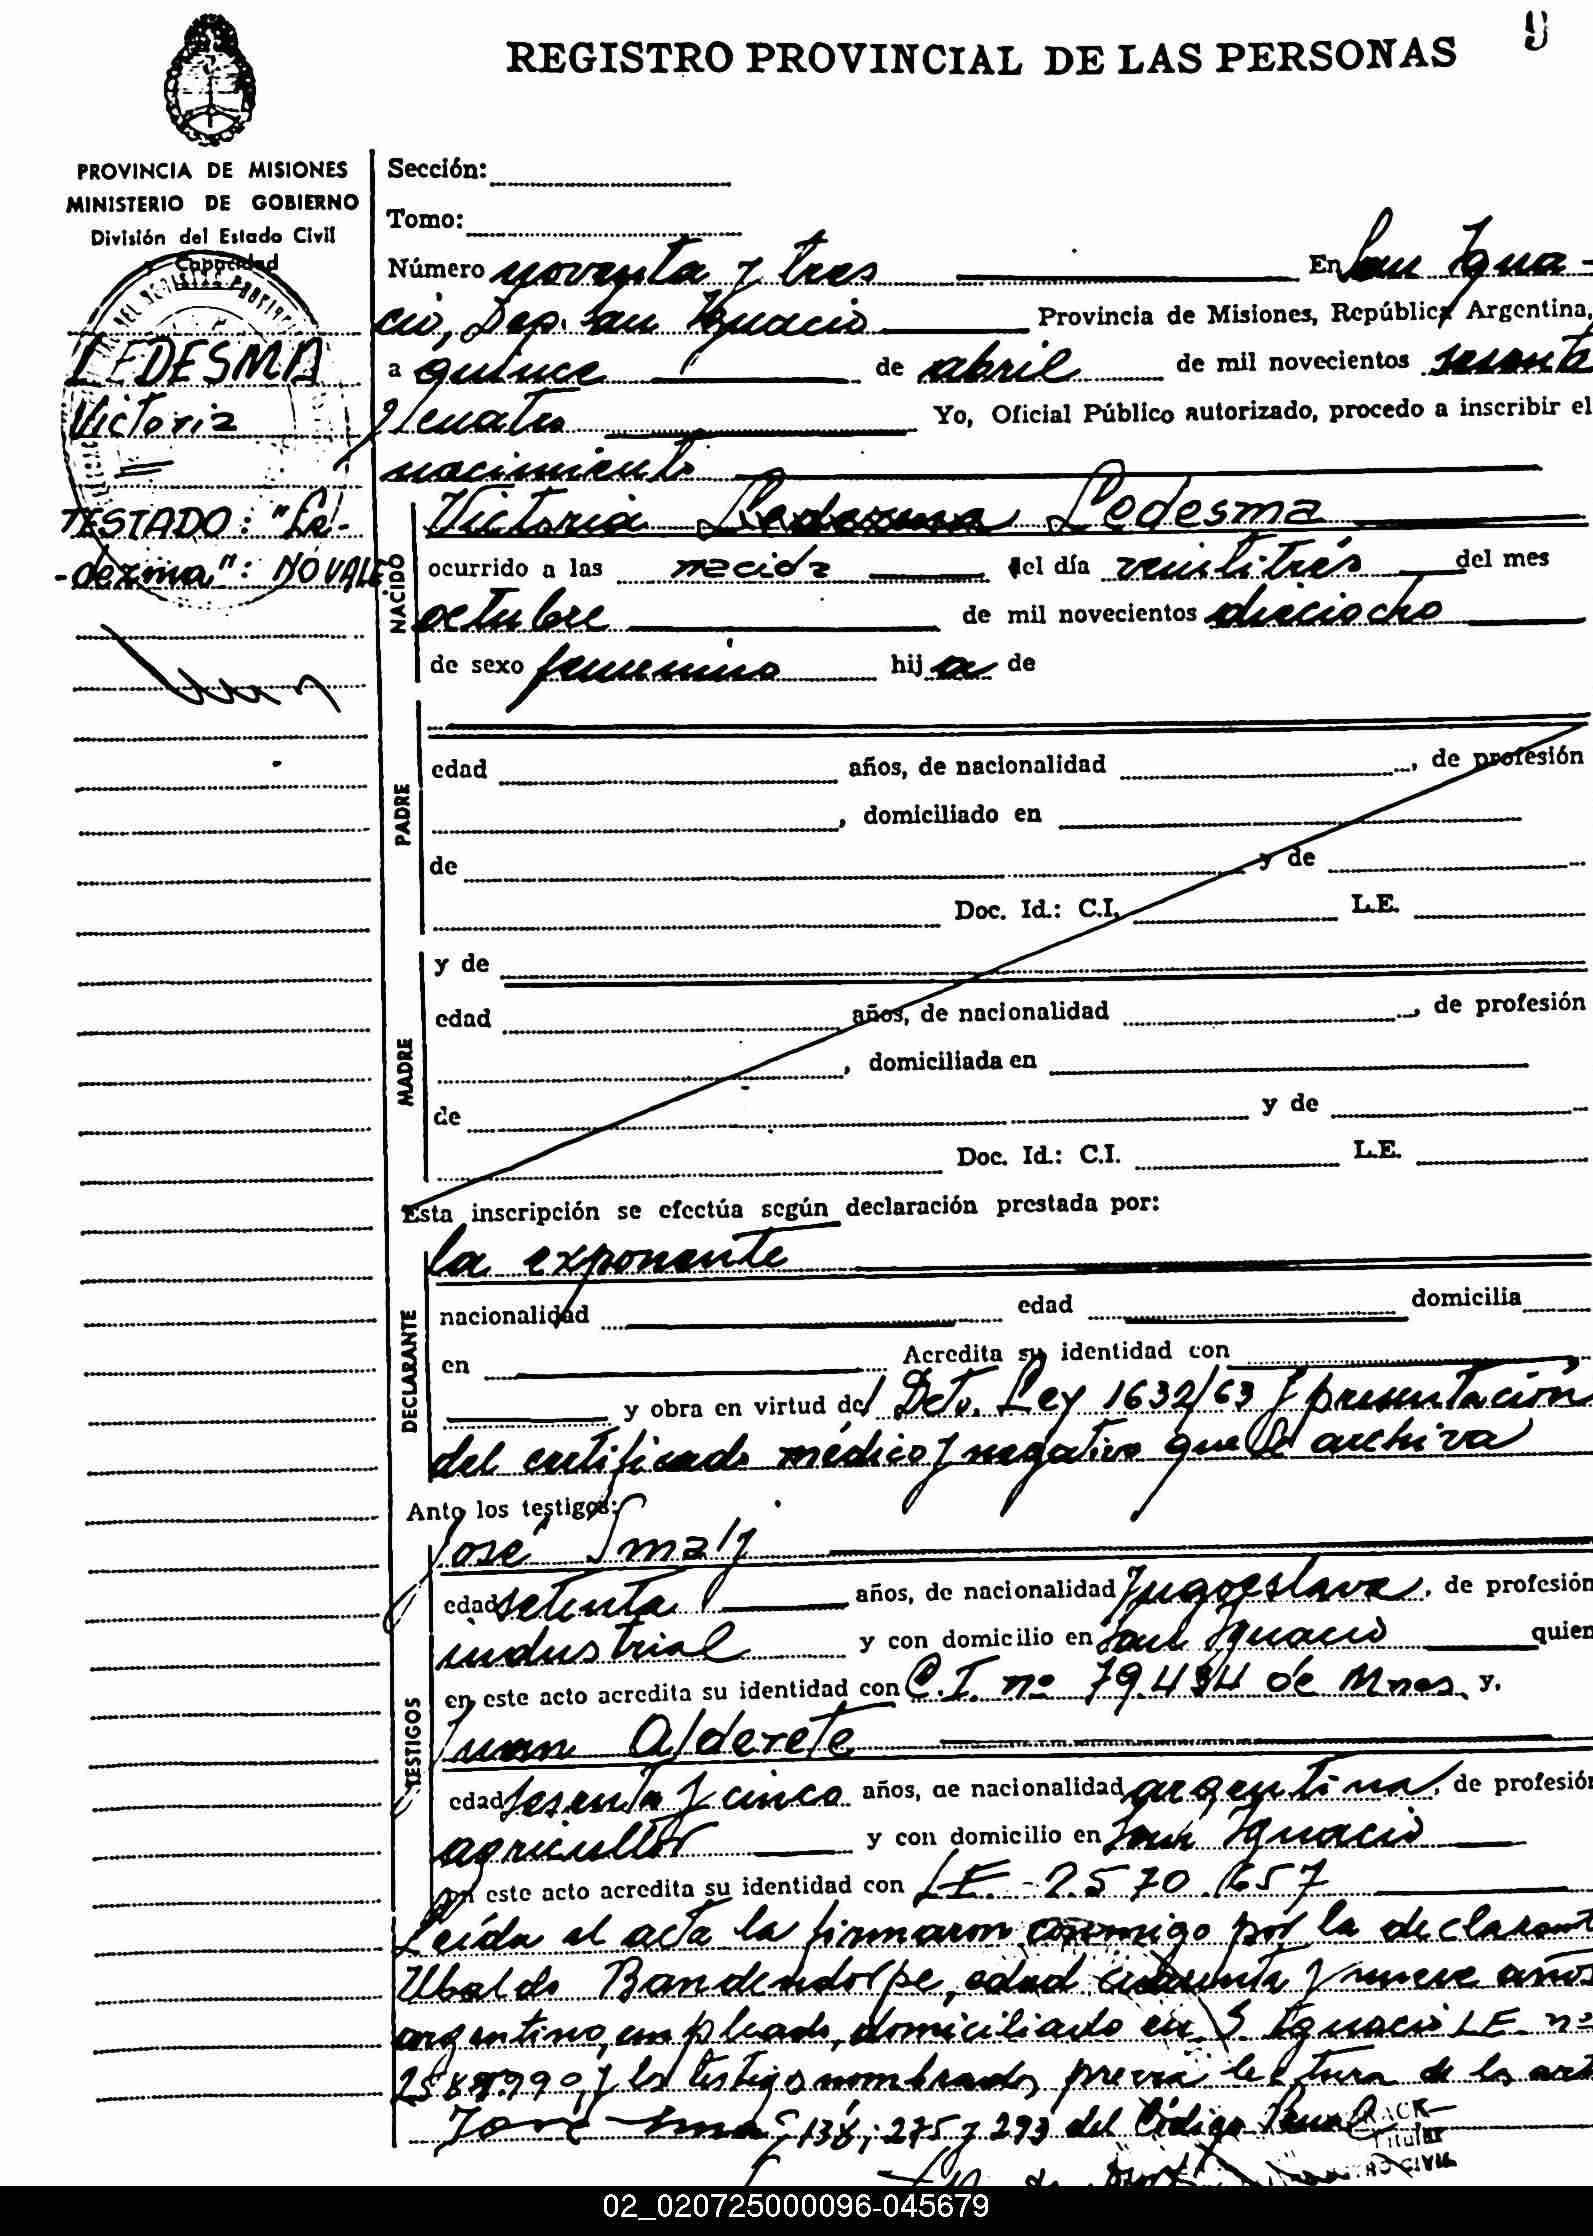 9
REGISTRO PROVINCIAL DE LAS PERSONAS
PROVINCIA DE MISIONES
MINISTERIO DE GOBIERNO
División del Estado Civil
y Capacidad
LEDESMA
Victoria
TESTADO: "Le-
-dezma": NO VALE
Sección:
Tomo:
Número noventa y tres En San Igna-
cio, Dep. San Ignacio Provincia de Misiones, República Argentina,
a quince de abril de mil novecientos sesenta
y cuatro Yo, Oficial Público autorizado, procedo a inscribir el
nacimiento
NACIDO
Victoria Ledezma Ledesma
ocurrido a las nacida del día veintitrés del mes
octubre de mil novecientos dieciocho
de sexo femenino hija de
PADRE
edad años, de nacionalidad , de profesión
, domiciliado en
de y de
Doc. Id.: C.I. L.E.
MADRE
y de
edad años, de nacionalidad , de profesión
, domiciliada en
de y de
Doc. Id.: C.I. L.E.
Esta inscripción se efectúa según declaración prestada por:
DECLARANTE
la exponente
nacionalidad edad domicilia
en Acredita su identidad con
y obra en virtud del Dcto. Ley 1632/63 y presentación
del certificado médico y negativo que se archiva
Ante los testigos:
TESTIGOS
José Smalj
edad setenta años, de nacionalidad Jugoeslava, de profesión
industrial y con domicilio en San Ignacio quien
en este acto acredita su identidad con C.I. nº 79.434 de Mnes y,
Juan Alderete
edad sesenta y cinco años, de nacionalidad argentina, de profesión
agricultor y con domicilio en San Ignacio
en este acto acredita su identidad con LE. 2.570.657
Leída el acta la firmaron conmigo por la declarante
Ubaldo Bandendorpe, edad cuarenta y nueve años
argentino, empleado, domiciliado en S. Ignacio LE. nº
y los testigos nombrados previa lectura de los art
José 138, 275 y 293 del Código Penal
Titular
02_020725000096-045679